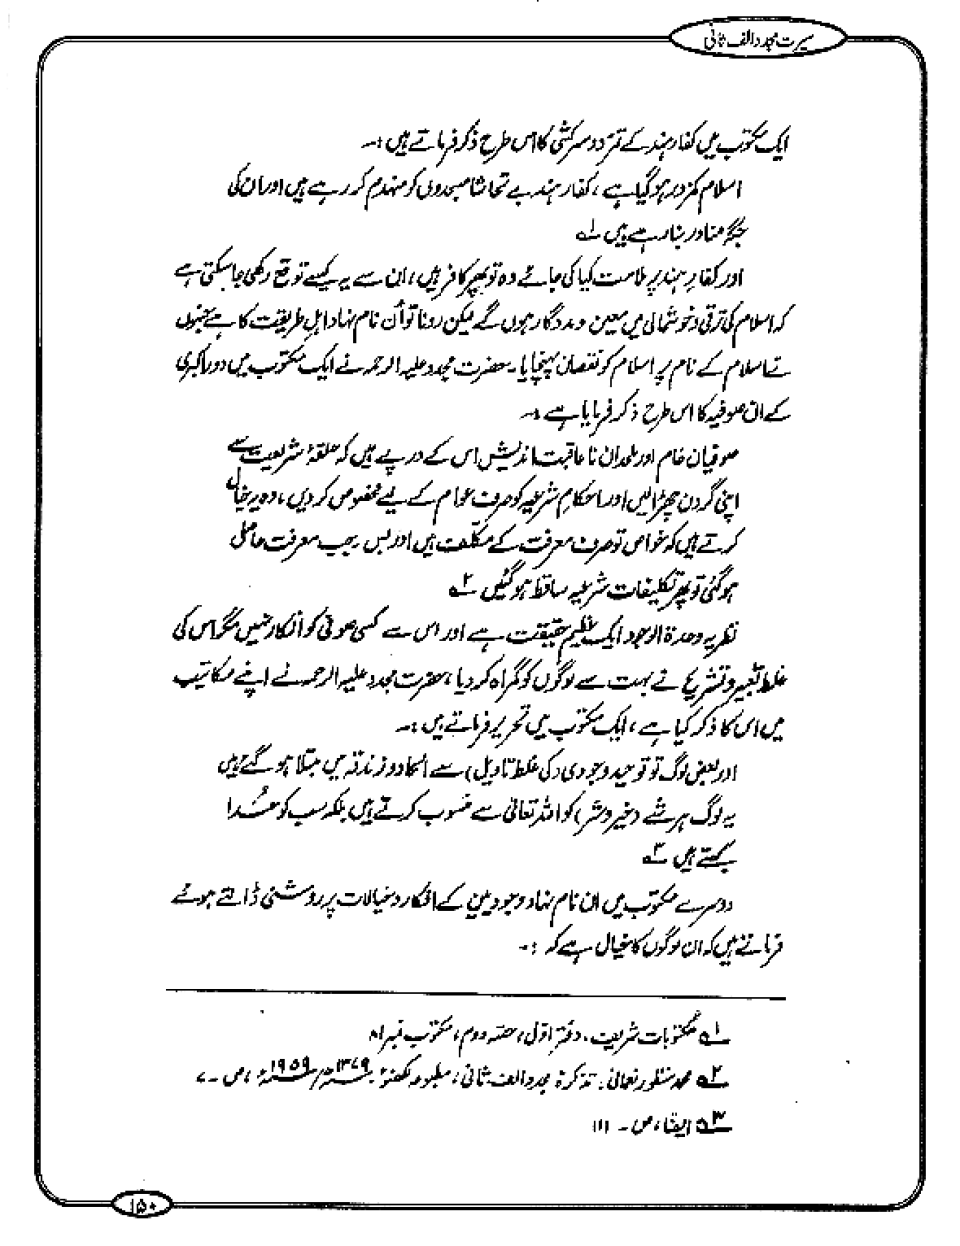 سیرت مجدد الف ثانی
ایک مکتوب میں کفار ہند کے تمرد و سرکشی کا اس طرح ذکر فرماتے ہیں :۔
اسلام کمزور ہو گیا ہے ، کفار ہند بے تحاشا مسجدوں کو منہدم کر رہے ہیں اور ان کی
جگہ منادر بنا رہے ہیں ۱؎
اور کفارِ ہند پر ملامت کیا کی جائے وہ تو پھر کافر ہیں ، ان سے یہ کیسے توقع رکھی جا سکتی ہے
کہ اسلام کی ترقی و خوشحالی میں معین و مددگار ہوں گے لیکن رونا تو اُن نام نہاد اہلِ طریقت کا ہے جنہوں
نے اسلام کے نام پر اسلام کو نقصان پہنچایا ۔ حضرت مجدد علیہ الرحمہ نے ایک مکتوب میں دورِ اکبری
کے ان صوفیہ کا اس طرح ذکر فرمایا ہے :۔
صوفیان خام اور ملحدان نا عاقبت اندیش اس کے درپے ہیں کہ حلقۂ شریعت سے
اپنی گردن چھڑالیں اور احکامِ شرعیہ کو صرف عوام کے لیے مخصوص کردیں ، وہ یہ خیال
کرتے ہیں کہ خواص تو صرف معرفت کے مکلّف ہیں اور بس ۔ جب معرفت حاصل
ہوگئی تو پھر تکلیفات شرعیہ ساقط ہوگئیں ۲؎
نظریہ وحدۃ الوجود ایک عظیم حقیقت ہے اور اس سے کسی صوفی کو انکار نہیں مگر اس کی
غلط تعبیر و تشریح نے بہت سے لوگوں کو گمراہ کر دیا ، حضرت مجدد علیہ الرحمہ نے اپنے مکاتیب
میں اس کا ذکر کیا ہے ، ایک مکتوب میں تحریر فرماتے ہیں :۔
اور بعض لوگ تو توحید وجودی (کی غلط تاویل) سے الحاد و زندقہ میں مبتلا ہو گئے ہیں
یہ لوگ ہر شے (خیر و شر) کو اللہ تعالیٰ سے منسوب کرتے ہیں بلکہ سب کو خُدا
کہتے ہیں ۳؎
دوسرے مکتوب میں ان نام نہاد وجودیین کے افکار و خیالات پر روشنی ڈالتے ہوئے
فرماتے ہیں کہ ان لوگوں کا خیال ہے کہ :۔
۱؎ مکتوبات شریف ، دفتر اوّل ، حصّہ دوم ، مکتوب نمبر ۸۱
۲؎ محمد منظور نعمانی : تذکرۃ مجدد الف ثانی ، مطبوعہ لکھنؤ ۱۳۷۹ھ / ۱۹۵۹ء ، ص ۔ ۷
۳؎ ایضاً ، ص ۔ ۱۱۱
۱۵۰